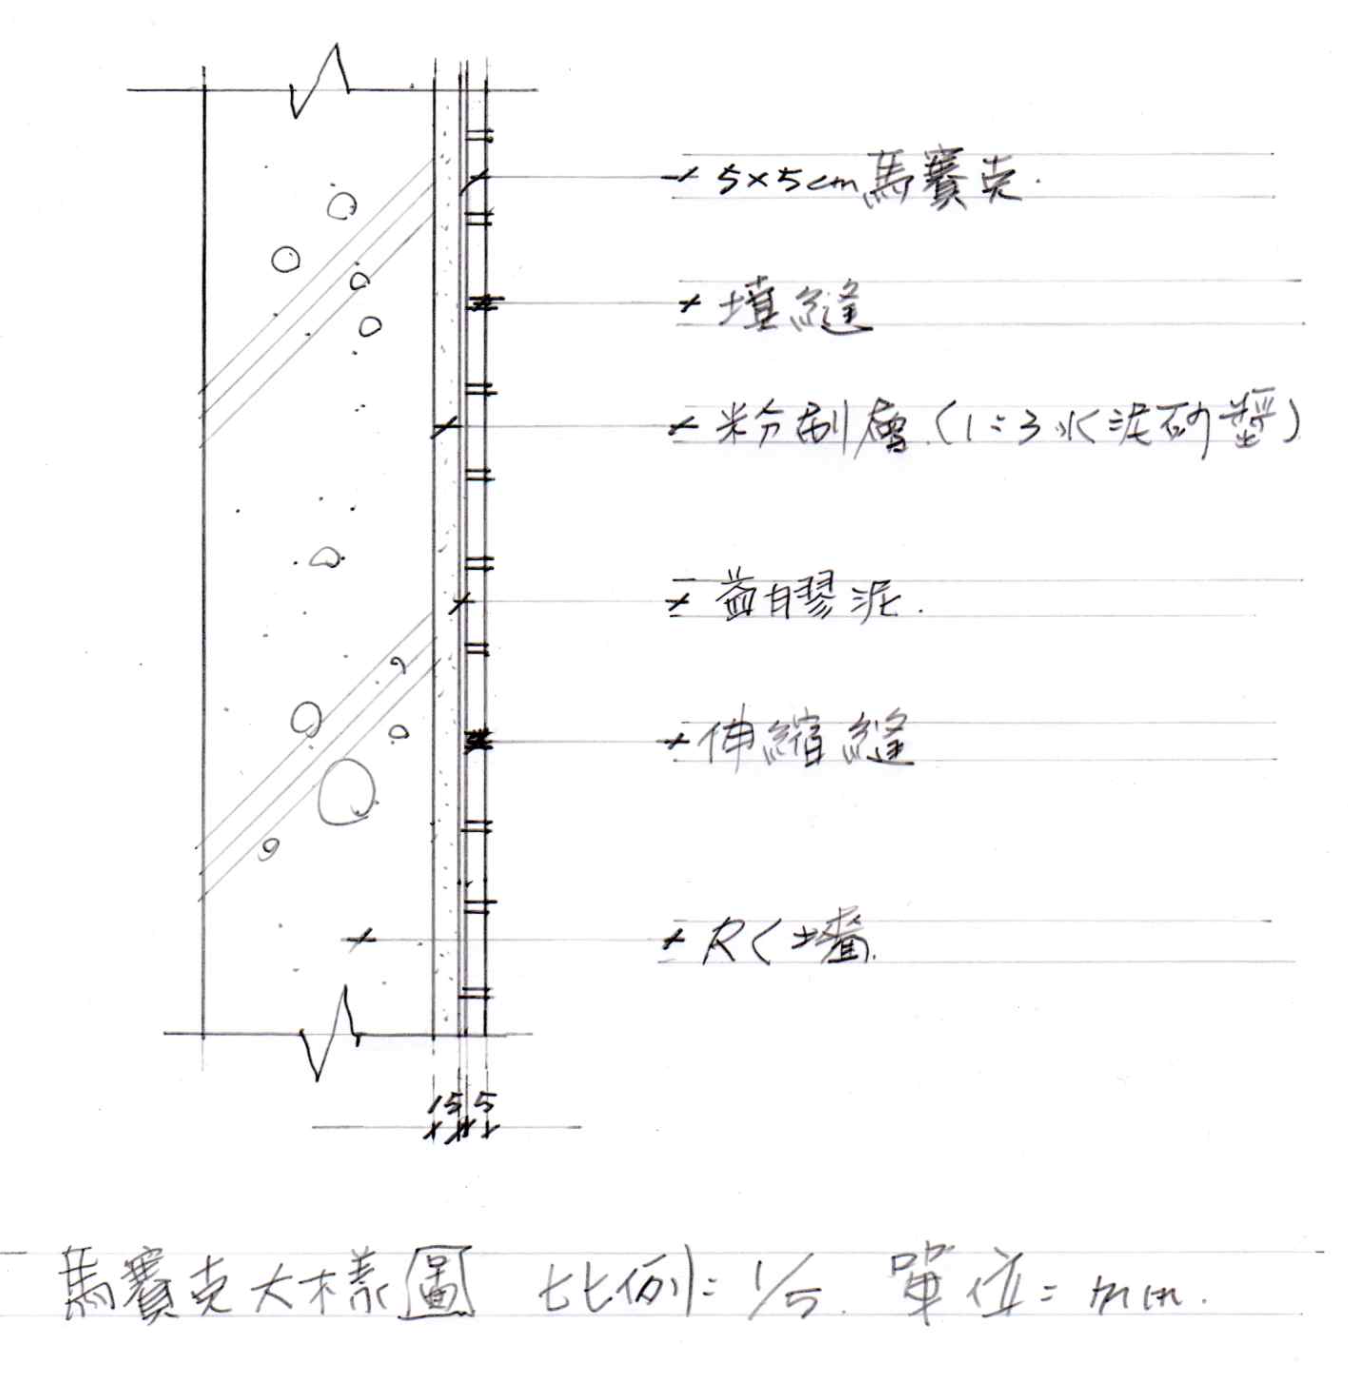 5×5cm馬賽克.
填縫
粉刷層(1:3水泥砂漿)
益膠泥.
伸縮縫
RC牆.
15 5
馬賽克大樣圖 比例:1/5. 單位:mm.